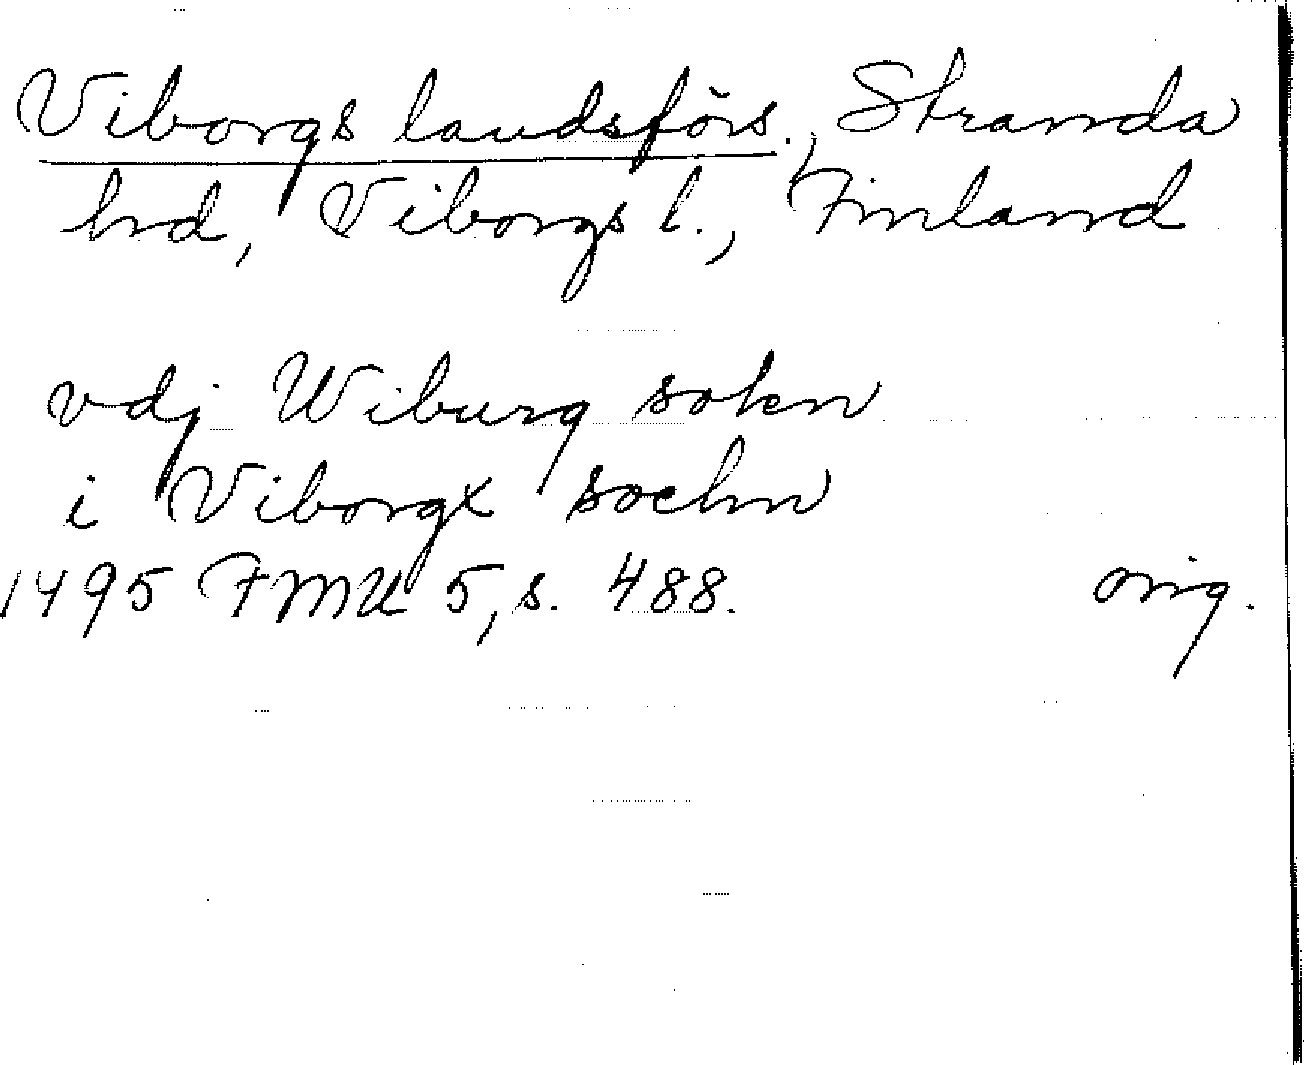 Viborgs landsförs., Stranda
hd, Viborgs l., Finland
vdj Wiburg sokn
i Viborgx sochn
1495 FMU 5, s. 488. orig.